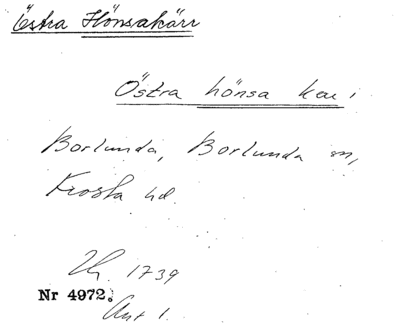 Östra Hönsakärr
Östra hönsa kau,
Borlunda, Borlunda sn,
Frosta hd.
1739
Nr 4972.
Akt 1.